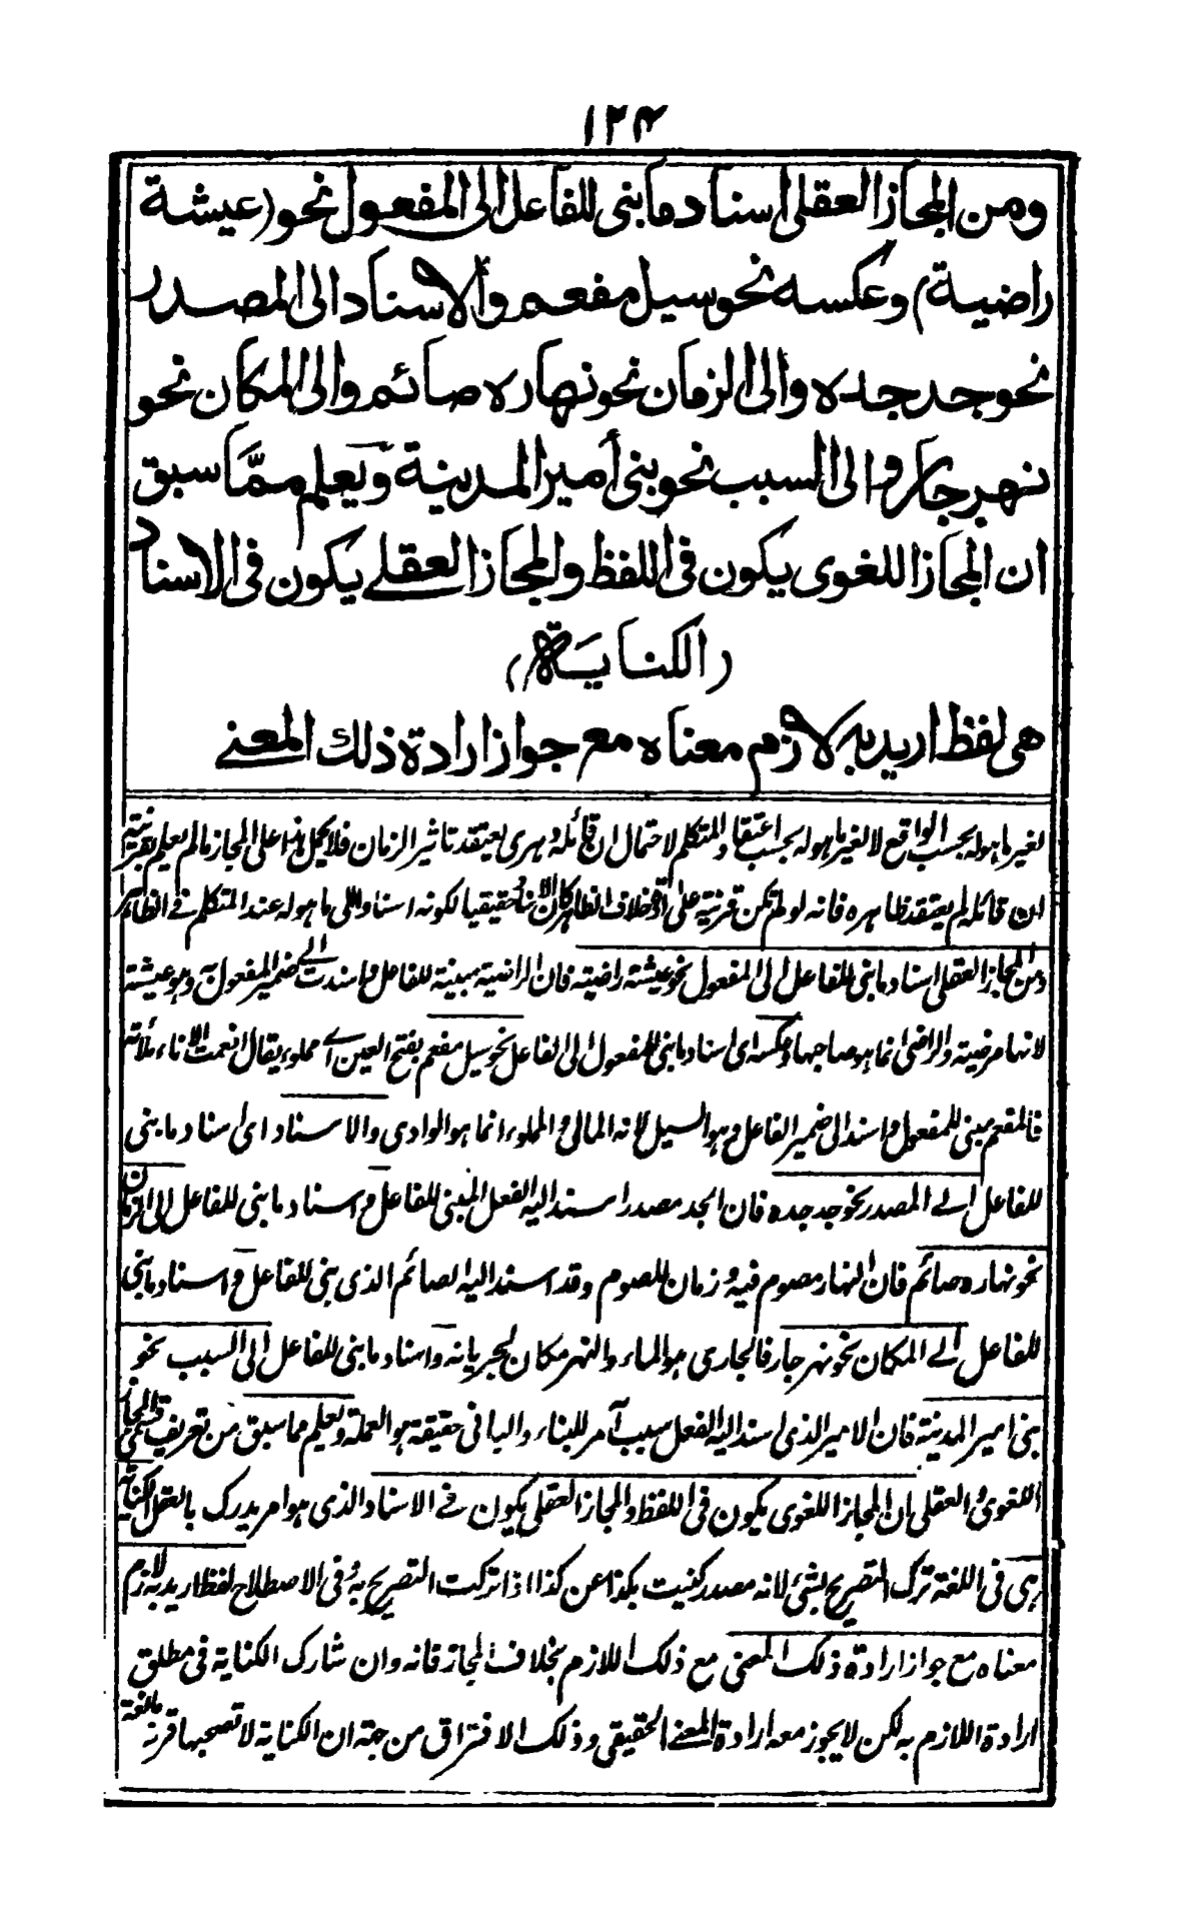 ١٢٤
ومن المجاز العقلى اسناد ما بنى للفاعل الى المفعول نحو (عيشة
راضية) وعكسه نحو سيل مفعم والاسناد الى المصدر
نحو جد جده والى الزمان نحو نهاره صائم والى المكان نحو
نهر جار والى السبب نحو بنى أمير المدينة ويعلم ممّا سبق
ان المجاز اللغوى يكون فى اللفظ والمجاز العقلے يكون فى الاسناد
(الكناية)
هى لفظ اريد به لازم معناه مع جواز ارادة ذلك المعنے
لغير ما هو له بحسب الواقع لا لغير ما هو له بحسب اعتقاد المتكلم لاحتمال ان قائله دهرى يعتقد تاثير الزمان فلا يحمل هذا على المجاز مالم يعلم بقرينة
ان قائله لم يعتقد ظاهره فانه لو لم تكن قرينة على انه خلاف الظاهر كان الاسناد حقيقيا لكونه اسنادا الى ما هو له عند المتكلم فے الظاهر
ومن المجاز العقلى اسناد ما بنى للفاعل الى المفعول نحو عيشة راضية فان الراضية مبنية للفاعل واسندت الے ضمير المفعول به وهو عيشة
لانها مرضية والراضى انما هو صاحبها وعكسه اى اسناد ما بنى للمفعول الى الفاعل نحو سيل مفعم بفتح العين اے مملوء يقال انعمت الاناء ملأته
فالمفعم مبنى للمفعول واسند الى ضمير الفاعل وهو السيل لانه المالى والمملوء انما هو الوادى والاسناد اى اسناد ما بنى
للفاعل الے المصدر نحو جد جده فان الجد مصدر اسند اليه الفعل المبنى للفاعل واسناد ما بنى للفاعل الى الزمان
نحو نهاره صائم فان النهار مصوم فيه وزمان للصوم وقد اسند اليه الصائم الذى بنى للفاعل واسناد ما بنى
للفاعل الے المكان نحو نهر جار فالجارى هو الماء والنهر مكان لجريانه واسناد ما بنى للفاعل الى السبب نحو
بنى امير المدينة فان الامير الذى اسند اليه الفعل سبب آمر للبناء والبانى حقيقة هو العملة ويعلم مما سبق من تعريف قسمى المجاز
اللغوى والعقلى ان المجاز اللغوى يكون فى اللفظ والمجاز العقلى يكون فے الاسناد الذى هو امر يدرك بالعقل الكناية
هى فى اللغة ترك التصريح بشئ لانه مصدر كنيت بكذا عن كذا اذا تركت التصريح به وفى الاصطلاح لفظ اريد به لازم
معناه مع جواز ارادة ذلك المعنى مع ذلك اللازم بخلاف المجاز فانه وان شارك الكناية فى مطلق
ارادة اللازم به لكن لا يجوز معه ارادة المعنے الحقيقى وذلك الافتراق من جهة ان الكناية لا تصحبها قرينة مانعة